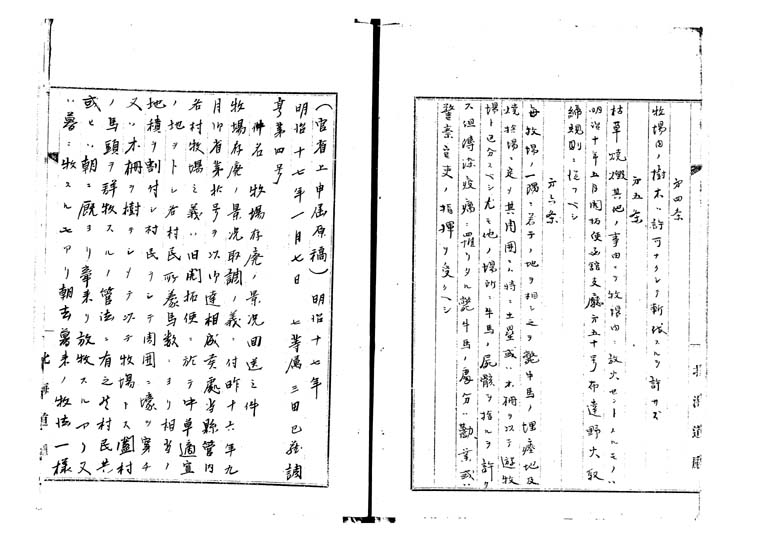 第四条
牧場内ノ樹木ハ許可ナクシテ斬伐スルヲ許サズ
第五条
枯草ノ焼燬其他ノ事由ニヨリ牧場内ニ放火セントスルモノハ
明治十年五月開拓使函館支廳第五十号布達野火取
締規則ニ從フベシ
第六条
毎牧場ノ一隅ニ若干ノ地ヲ相シ之ヲ斃牛馬ノ埋瘞地及
焼捨場ニ定メ其周囲ニハ特ニ土塁或ハ木柵ヲ以テ遊牧
場ト区分スベシ尤モ他ノ場所ニ牛馬ノ屍骸ヲ捨ルヲ許サ
ス但傳染疫病ニ罹リタル斃牛馬ノ處分ハ勧業或ハ
警察官吏ノ指揮ヲ受クベシ
北海道廳
(官省上申届原稿)明治十七年
明治十七年一月七日 七等属三田已 調
亨第四号
件名 牧場存廃ノ景況回送之件
牧場存廃ノ景況取調ノ義ニ付昨十六年九
月御省第 号ヲ以御達相成候處当縣管内
各村牧場之義ハ旧開拓使ニ於テ中草適宜
ノ地ヲトシ各村民所養馬数ニヨリ相当ノ
地積ヲ割付シ村民ヲシテ周囲ニ壕ヲ穿チ
又ハ木柵ヲ樹テシメテ以テ牧場トス闔村
ノ馬頭ヲ群牧スルノ管法ニ有之候村民共
或ヒハ朝ニ厩ヨリ牽来リ放牧スルアリ又
ハ暮ニ牧スルモアリ朝去暮来ノ牧法一様
北海道廳